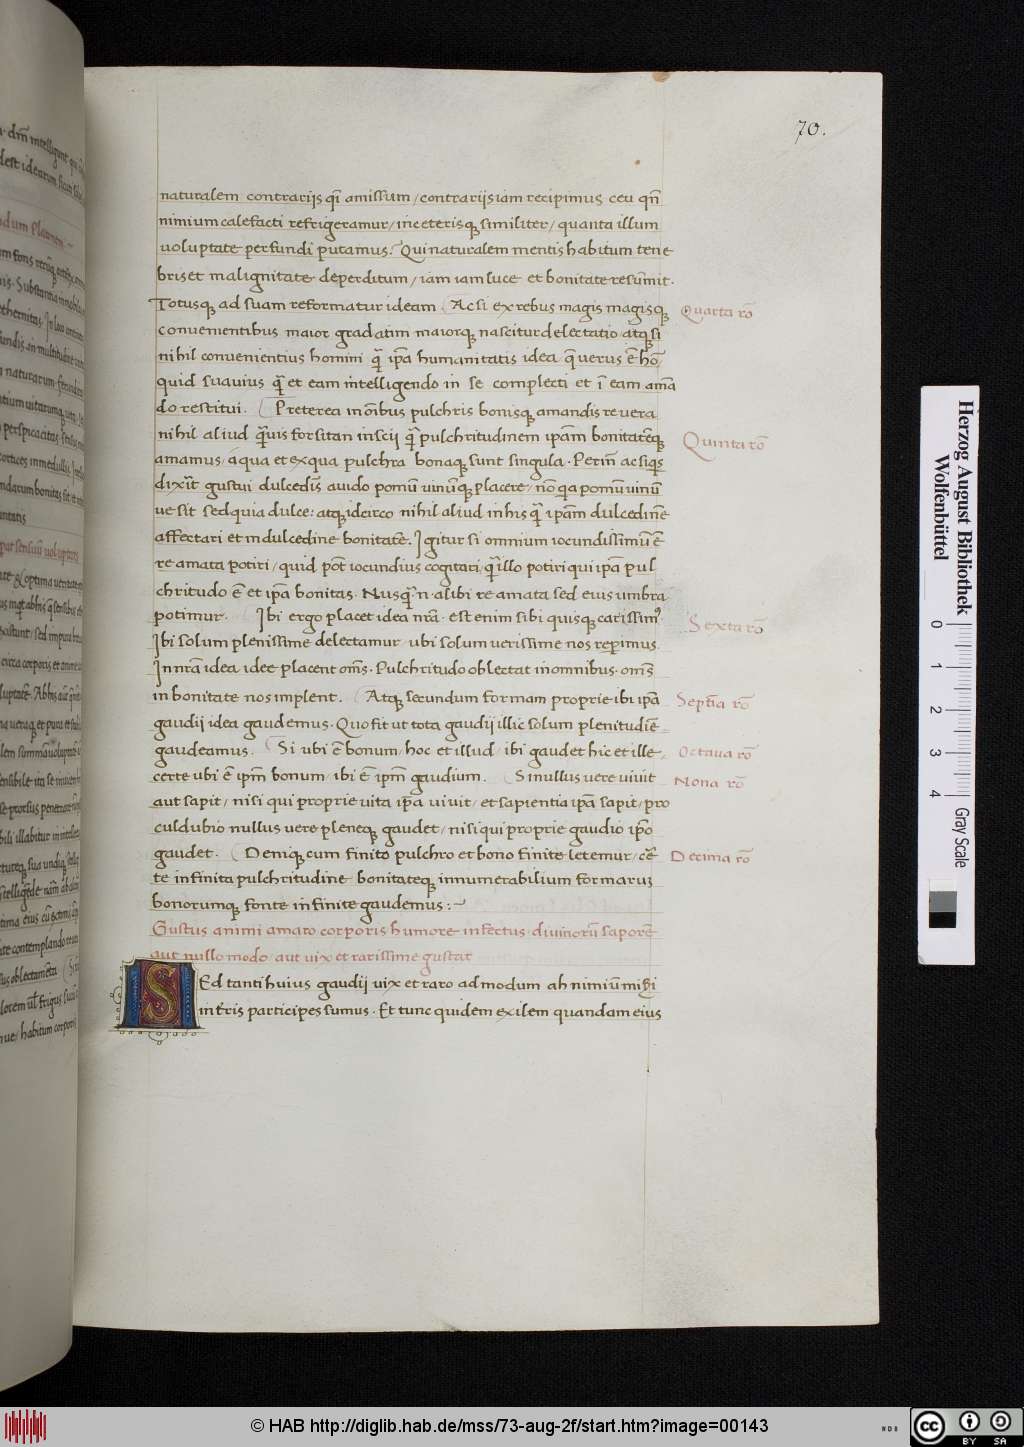 70.
naturalem contrarijs qͥ amissum / contrarijs iam recipimus ceu qn̄
nimium calefacti refrigeramur / in ceterisqꝫ similiter / quanta illum
uoluptate perfundi putamus? Qui naturalem mentis habitum tene
bris et malignitate deperditum / iam iam luce et bonitate resumit.
Totusqꝫ ad suam reformatur ideam ( Ac si ex rebus magis magisqꝫ
Quarta rō
conuenientibus maior gradatim maiorqꝫ nascitur delectatio atqꝫ si
nihil conuenientius homini qᷓ ip̄a humanitatis idea que uerus ē hō
quid suauius qᷓ et eam intelligendo in se complecti et ī eam amā
do restitui. ( Preterea in ōibus pulchris bonisqꝫ amandis re uera
nihil aliud qᷓuis forsitan inscij qᷓ pulchritudinem ip̄am bonitatēqꝫ
Quinta rō
amamus / a qua et ex qua pulchra bonaqꝫ sunt singula. Perīn ac si q̄s
dixīt gustui dulcedīs auido pomū uinūqꝫ placere / nō qa pomū uinū
ue sit sed quia dulce: atqꝫ idcirco nihil aliud in his qᷓ ip̄am dulcedinē
affectari et in dulcedine bonitatē. Igitur si omnium iocundissimū ē
re amata potiri / quid pōt iocundius cogitari qᷓ illo potiri qui ip̄a pul
chritudo ē et ip̄a bonitas. Nusqᷓ n̄ alibi re amata sed eius umbra
potimur. ( Ibi ergo placet idea nr̄a. est enim sibi quisqꝫ carissimꝰ
Sexta rō
Ibi solum plenissime delectamur ubi solum uerissime nos reperimus.
In nr̄a idea idee placent om̄s. Pulchritudo oblectat in omnibus. om̄s
in bonitate nos implent. ( Atqꝫ secundum formam proprie ibi ip̄a
Septīa rō
gaudij idea gaudemus. Quo fit ut tota gaudij illic solum plenitudīe
gaudeamus. ( Si ubi ē bonum / hoc et illud / ibi gaudet hic et ille
Octaua rō
certe ubi ē ip̄m bonum / ibi ē ip̄m gaudium. ( Si nullus uere uiuit
Nona rō
aut sapit / nisi qui proprie uita ip̄a uiuit / et sapientia ip̄a sapit / pro
culdubio nullus uere pleneqꝫ gaudet / nisi qui proprie gaudio ip̄o
gaudet. ( Deniqꝫ cum finito pulchro et bono finite letemur / cer̄
Decima rō
te infinita pulchritudine bonitateqꝫ innumerabilium formarum
bonorumqꝫ fonte infinite gaudemus:~
Gustus animi amaro corporis humore infectus diuinorū saporē
aut nullo modo aut uix et rarissime gustat
SEd tanti huius gaudij uix et raro admodum ah nimiū miẜi
in tr̄is participes sumus. Et tunc quidem exilem quandam eius
Herzog August Bibliothek
Wolfenbüttel
0 1 2 3 4
Gray Scale
© HAB http://diglib.hab.de/mss/73-aug-2f/start.htm?image=00143
WDB
cc BY SA